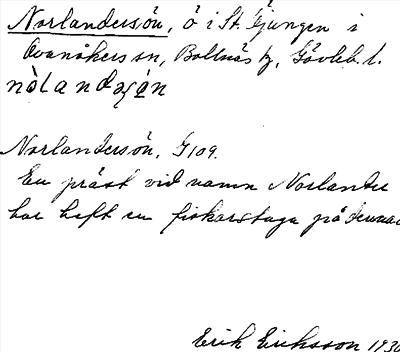 Norlandersön, ö i St. Ljungen i
Ovanåkers sn, Bollnäs tg, Gävleb. l.
Norlandersön, G 109.
En präst vid namn Norlander
har haft en fiskarstuga på denna
Erik Eriksson 1930